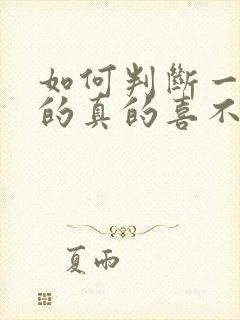 如何判斷一
的真的喜不
夏雨